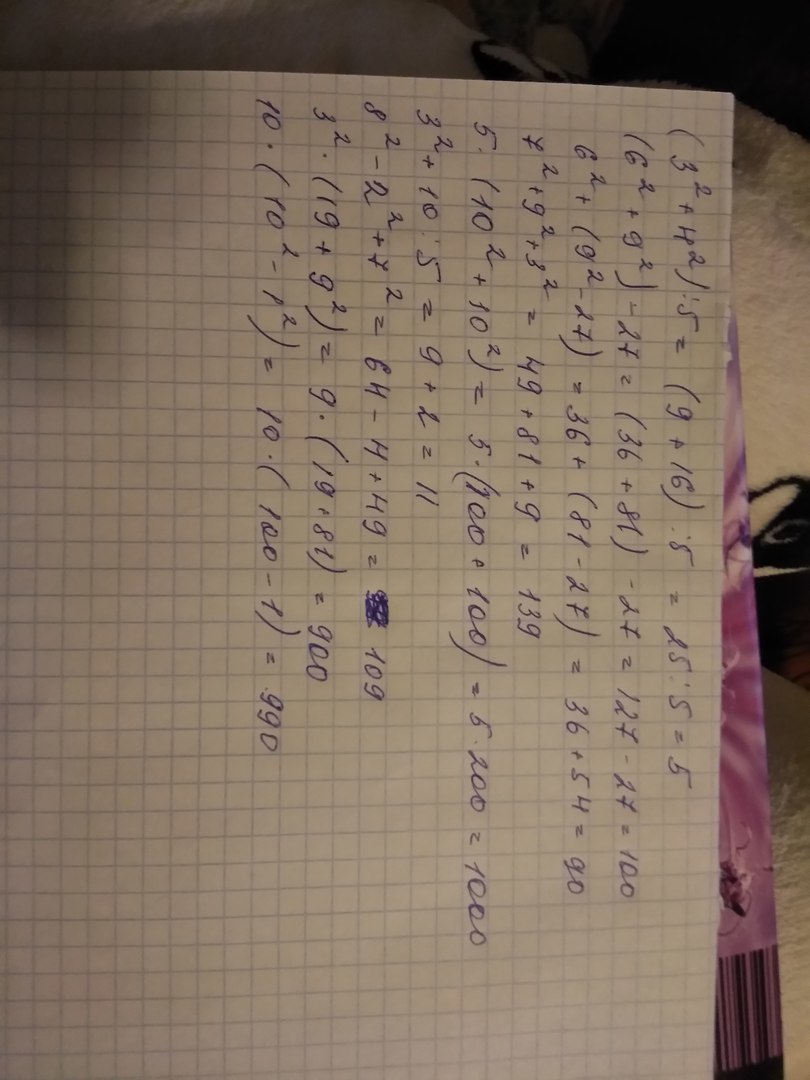 (3² + 4²) : 5 = (9 + 16) : 5 = 25 : 5 = 5
(6² + 9²) - 27 = (36 + 81) - 27 = 127 - 27 = 100
6² + (9² - 27) = 36 + (81 - 27) = 36 + 54 = 90
7² + 9² + 3² = 49 + 81 + 9 = 139
5 · (10² + 10²) = 5 · (100 + 100) = 5 · 200 = 1000
3² + 10 : 5 = 9 + 2 = 11
8² - 2² + 7² = 64 - 4 + 49 = 109
3² · (19 + 9²) = 9 · (19 + 81) = 900
10 · (10² - 1²) = 10 · (100 - 1) = 990